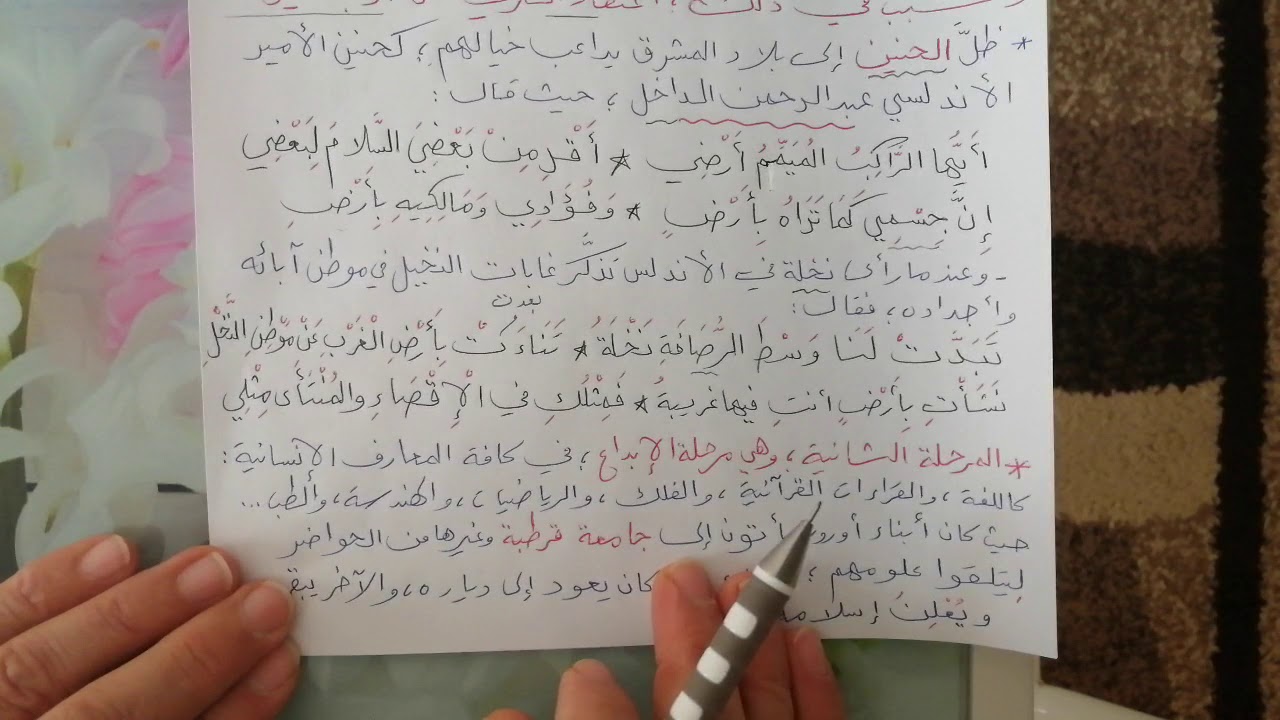 * ظلَّ الحنين إلى بلاد المشرق يداعب خيالهم، كحنين الأمير
الأندلسي عبد الرحمن الداخل، حيث قال:
أَيُّهَا الرَّاكِبُ المُيَمِّمُ أَرْضِي * أَقْرِ مِنْ بَعْضِيَ السَّلامَ لِبَعْضِي
إِنَّ جِسْمِي كَمَا تَرَاهُ بِأَرْضٍ * وَفُؤَادِي وَمَالِكِيهِ بِأَرْضِ
- وعندما رأى نخلة في الأندلس تذكَّر غابات النخيل في موطن آبائه
وأجداده، فقال:
بعدت
تَبَدَّتْ لَنَا وَسْطَ الرُّصَافَةِ نَخْلَةٌ * تَنَاءَتْ بِأَرْضِ الْغَرْبِ عَنْ مَوْطِنِ النَّخْلِ
نَشَأْتِ بِأَرْضٍ أنتِ فيها غريبةٌ * فَمِثْلُكِ في الْإِقْصَاءِ والمُنْتَأَى مِثْلِي
* المرحلة الثانية، وهي مرحلة الإبداع، في كافة المعارف الإنسانية:
كاللغة، والقراءات القرآنية، والفلك، والرياضيات، والهندسة، والطب...
حيث كان أبناء يأتون إلى جامعة قرطبة وغيرها من الحواضر
لِيَتلقَوا علومهم، كان يعود إلى دياره، والآخر يبقى
ويُعْلِنَ